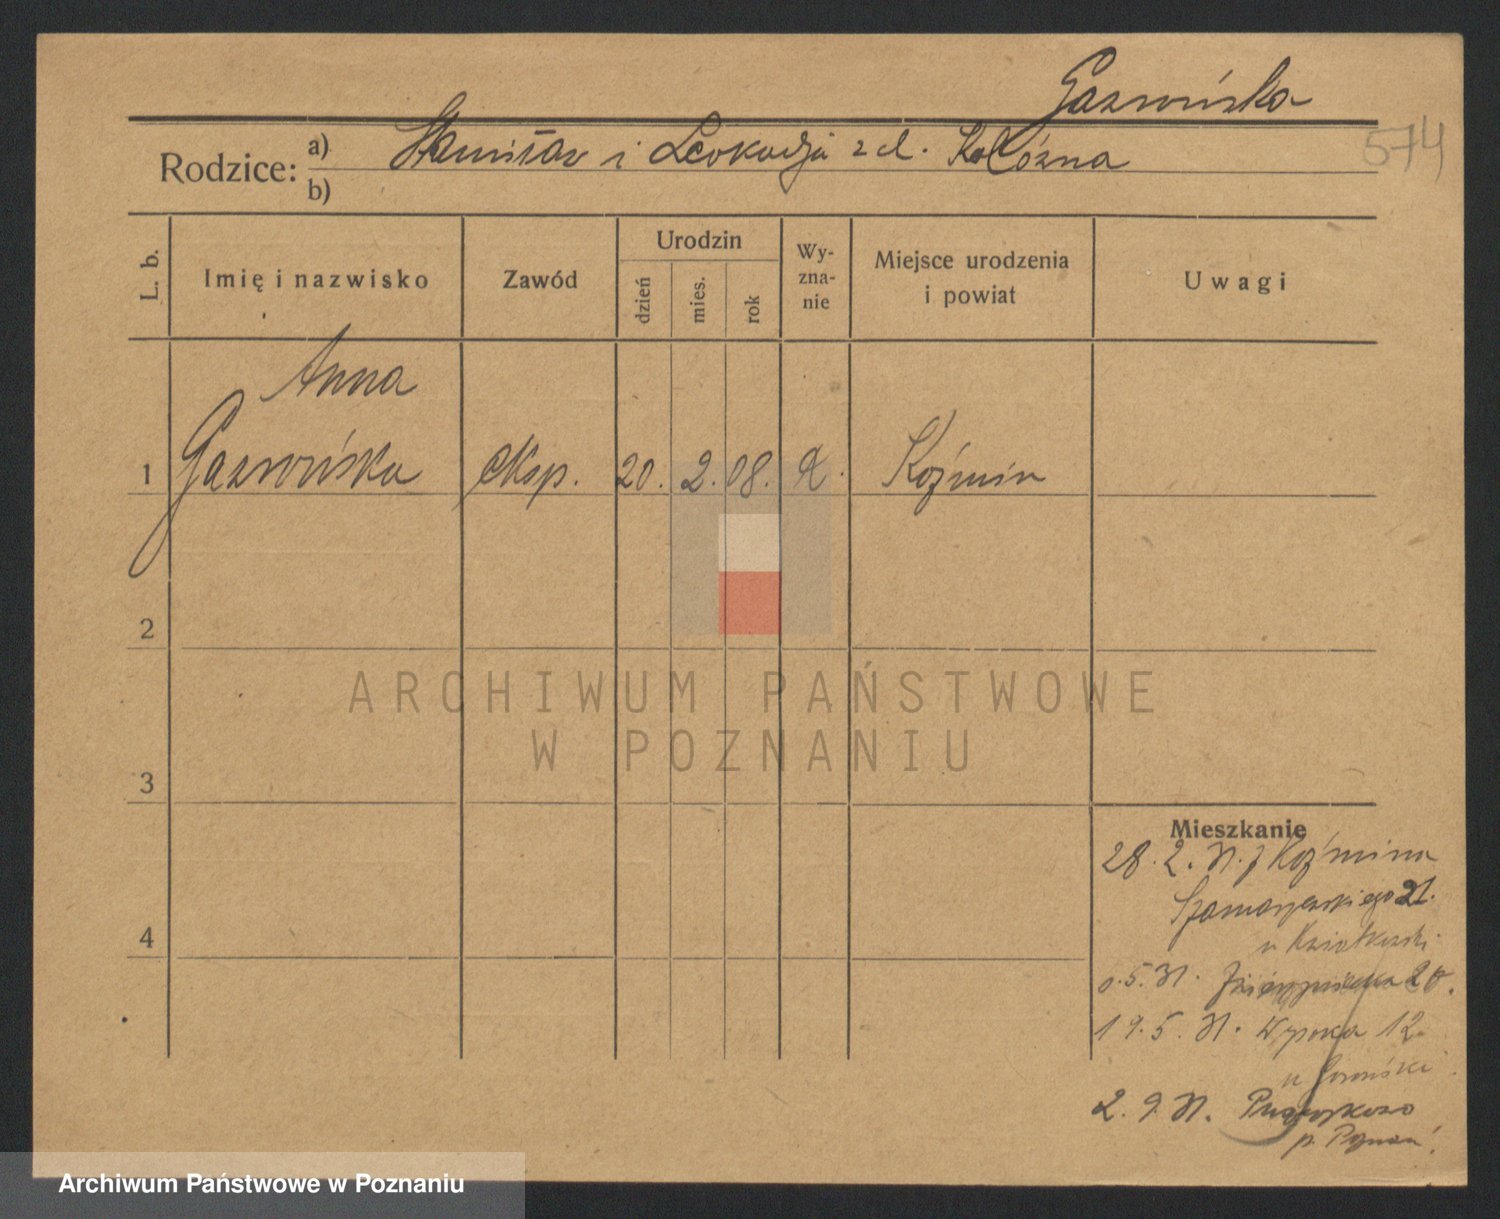 Gazwińska
574
Rodzice: a) Stanisław i Leokadja z d. Kałóżna
b)
L. b.
Imię i nazwisko
Zawód
Urodzin
dzień
mies.
rok
Wy-
zna-
nie
Miejsce urodzenia
i powiat
Uwagi
Anna
1 Gazwińska eksp. 20. 2. 08. Koźmin
2
3
4
ARCHIWUM PAŃSTWOWE
W POZNANIU
Mieszkanie
28. 2. 31. z Koźmina
Szamarzewskiego 21.
5. 31. 20.
19. 5. 31. Wysoka 12
u
2. 9. 31.
p. Poznań
Archiwum Państwowe w Poznaniu